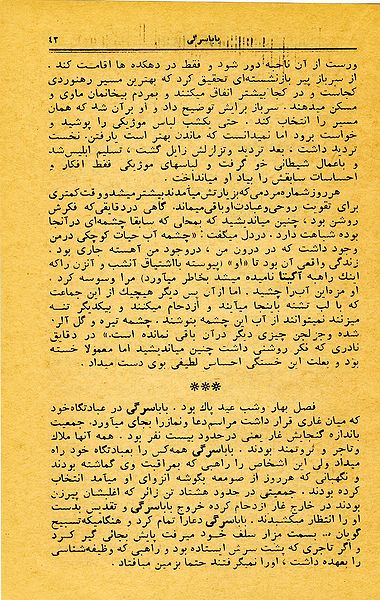 باباسرگی ۴۳
ورست از آن ناحیه دور شود و فقط در دهکده ها اقامت کند .
از سرباز پیر بازنشسته‌ای تحقیق کرد که بهترین مسیر رهنوردی
کجاست و در کجا بیشتر انفاق میکنند و بهمردم بیخانمان ماوی و
مسکن میدهند . سرباز برایش توضیح داد و او برآن شد که همان
مسیر را انتخاب کند . حتی یکشب لباس موژیکی را پوشید و
خواست برود اما نمیدانست که ماندن بهتر است یارفتن. نخست
تردید داشت ، بعد تردید وتزلزلش زایل گشت ، تسلیم ابلیس‌شد
و باعمال شیطانی خو گرفت و لباسهای موژیکی فقط افکار و
احساسات سابقش را بیاد او میانداخت .
هرروزشماره مردمی‌که بزیارتش میآمدندبیشترمیشدووقت‌کمتری
برای تقویت روحی‌وعبادت‌اوباقی‌میماند. گاهی دردقایقی‌که فکرش
روشن بود ، چنین میاندیشید که بمحلی که سابقا چشمه‌ای درآنجا
بوده شباهت دارد . دردل میگفت : «چشمه آب حیات کوچکی درمن
وجود داشت که در درون من ، دروجود من آهسته جاری بود .
زندگی واقعی آن بود تا«او» (پیوسته بااشتیاق آنشب و آنزن راکه
اینك راهبه آگنیا نامیده میشد بخاطر میآورد) مرا وسوسه کرد .
او مزه‌این آب‌را چشید . اما ازآن پس دیگر هیچیك از این جماعت
که با لب تشنه باینجا میآیند و ازدحام میکنند و بیکدیگر تنه
میزنند نمیتوانند از آب این چشمه بنوشند . چشمه تیره و گل آلود
شده وجزلجن چیزی دیگر درآن باقی نمانده است.» در دقایق
نادری که فکر روشنی داشت چنین میاندیشید اما معمولا خسته
بود و بعلت این خستگی احساس لطیفی بوی دست میداد .
***
فصل بهار وشب عید پاك بود . باباسرگی در عبادتگاه‌خود
که میان غاری قرار داشت مراسم‌دعا ونمازرا بجای میآورد. جمعیت
باندازه گنجایش غار یعنی درحدود بیست نفر بود . همه آنها ملاك
وتاجر و ثروتمند بودند . باباسرگی همه‌کس را بعبادتگاه خود راه
میداد ولی این اشخاص را راهبی که بمراقبت وی گماشته بودند
و نگهبانی که هرروز از صومعه بگوشه انزوای او میآمد انتخاب
کرده بودند . جمعیتی در حدود هشتاد تن زائر که اغلبشان پیرزن
بودند در خارج غار ازدحام کرده خروج باباسرگی و تقدیس بدست
او را انتظار میکشیدند. باباسرگی دعارا تمام کرد و هنگامیکه‌تسبیح
گویان ... بسمت مزار سلف خود میرفت پایش بجائی گیر کرد
و اگر تاجری که پشت سرش ایستاده بود و راهبی که وظیفه‌شناسی
را بعهده داشت ، اورا نمیگرفتند حتما بزمین میافتاد .